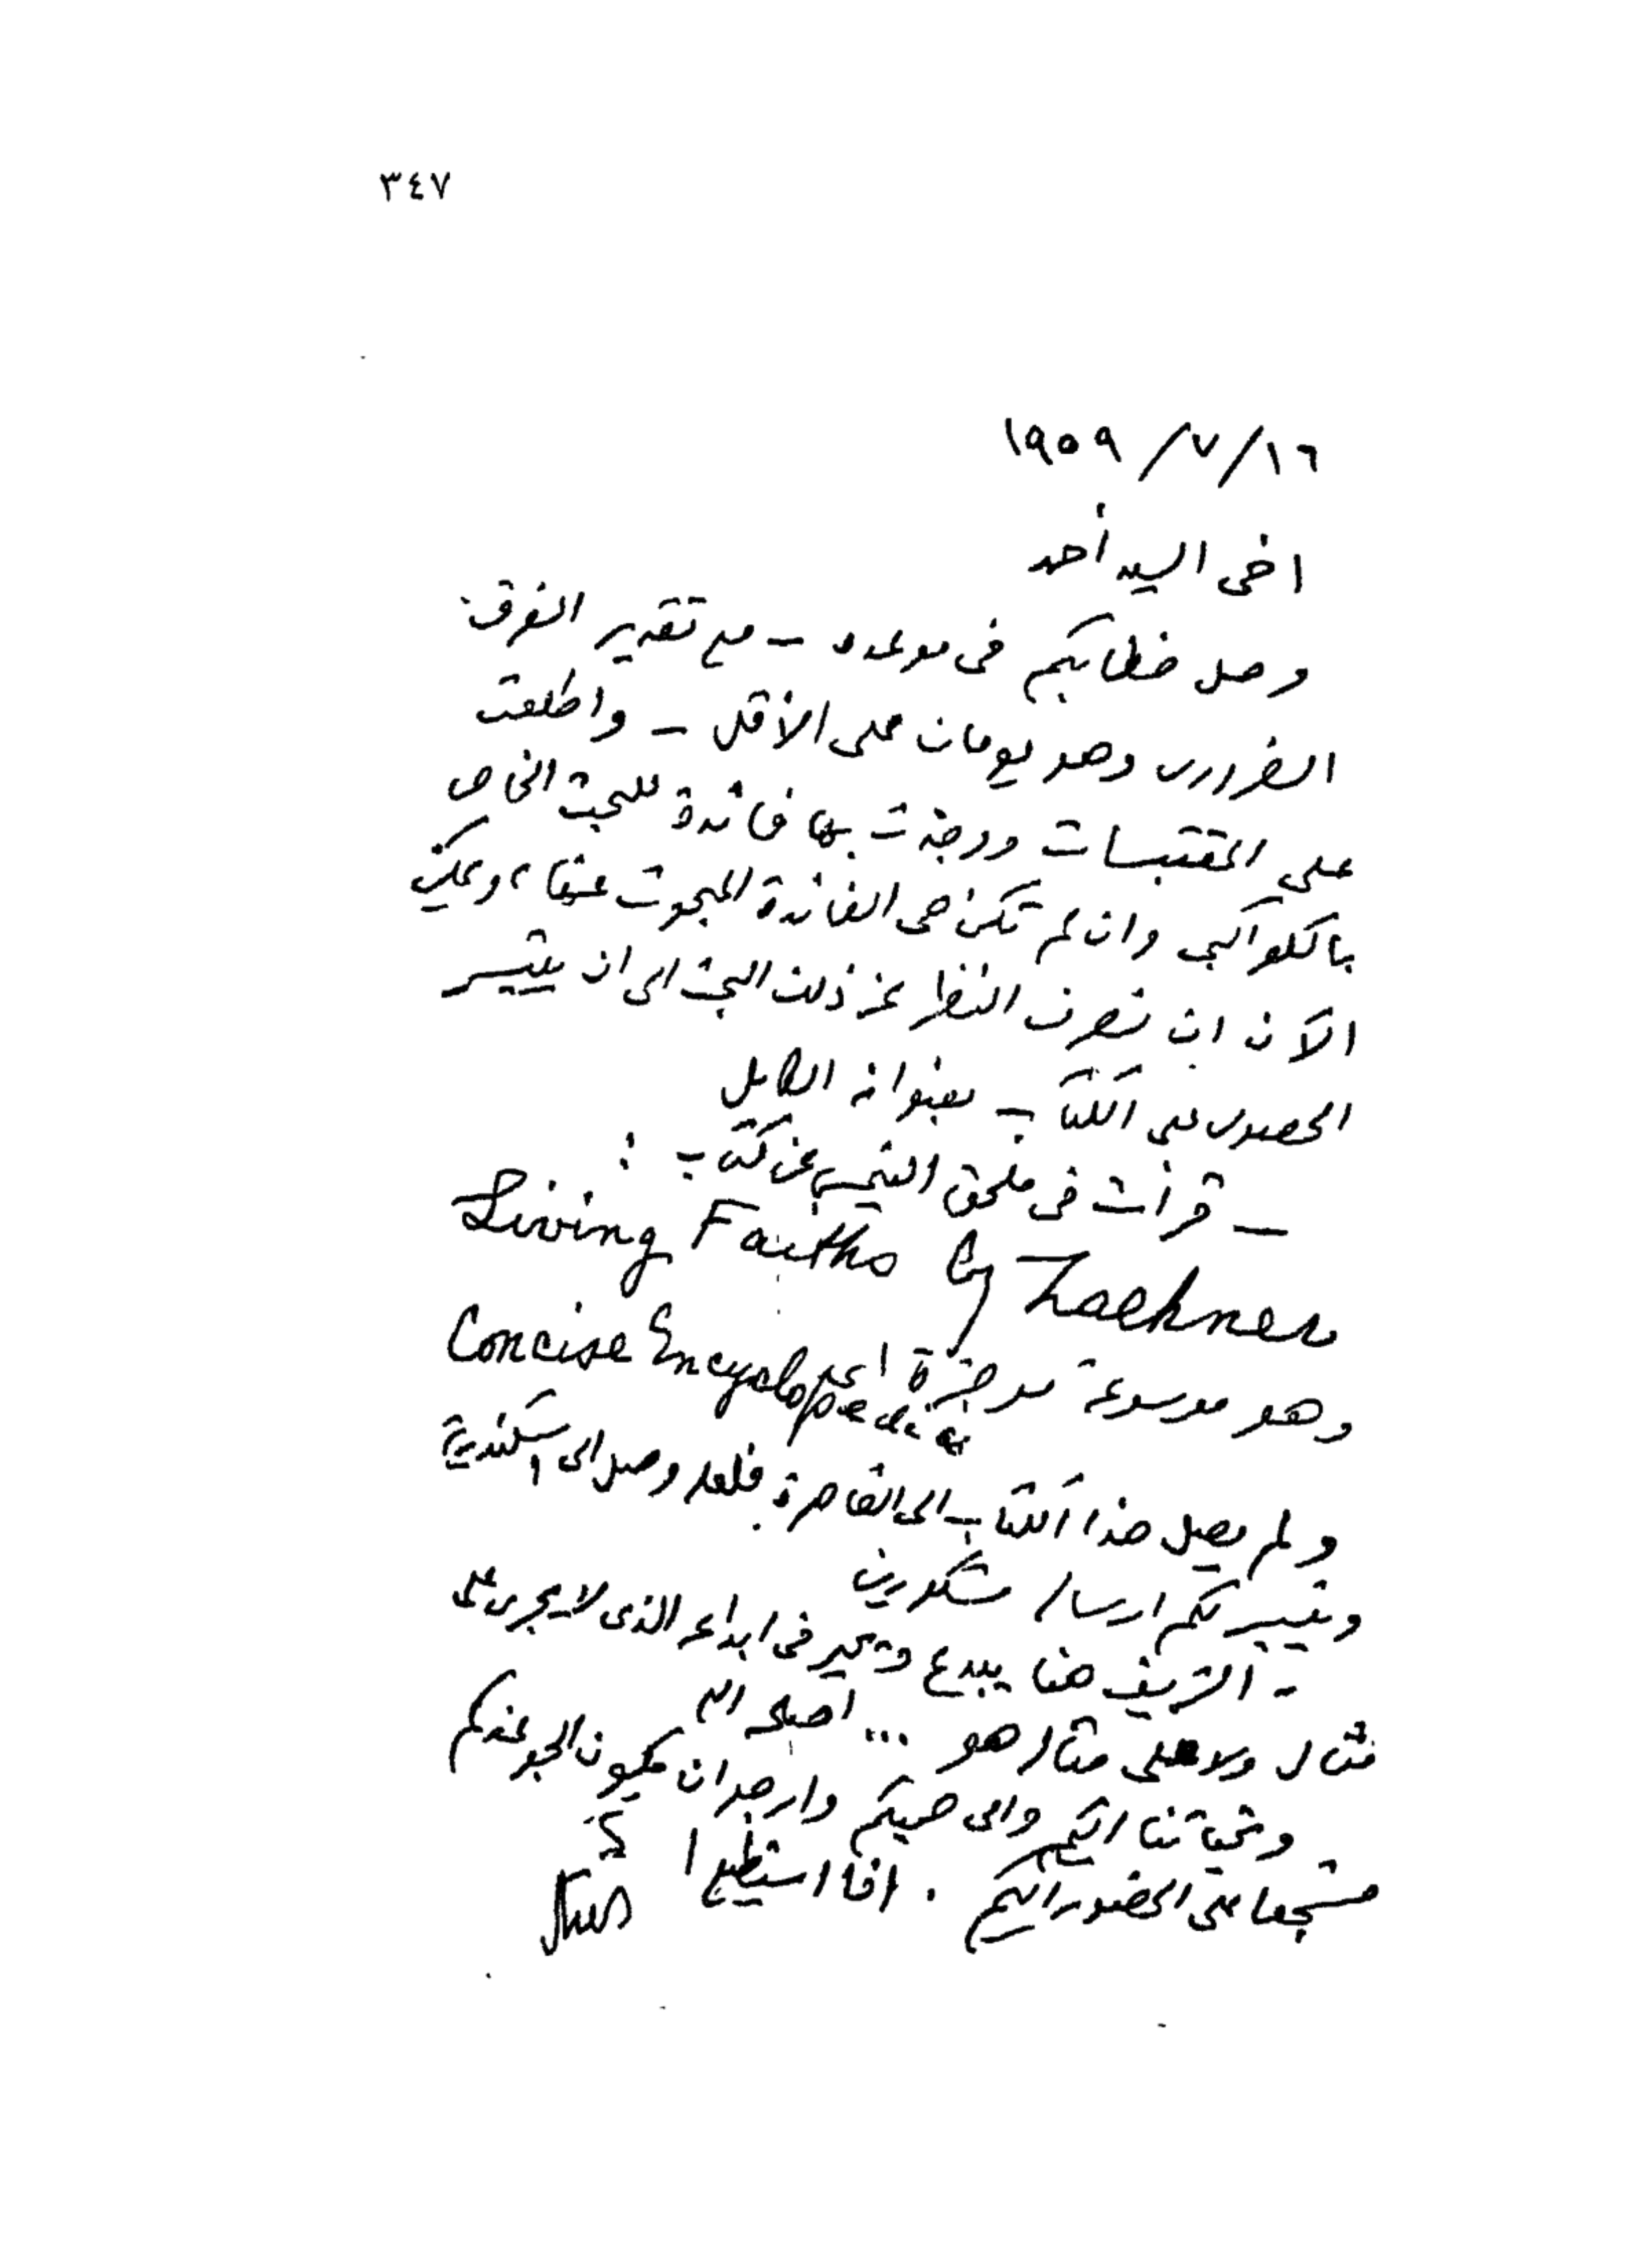 ٣٤٧
١٦/٧/١٩٥٩
اخى السيد أحمد
وصل خطابكم فى موعده – مع تقدير الفرق
الضرورى وهو يومان على الأقل – واطلعت
على المقتبسات ووجدت بها فائدة للبحث الخاص
بالكواكبى وان لم تكن هى الفائدة المبحوث عنها، ويمكن
الآن ان نصرف النظر عن ذلك البحث الى ان يتيسر
الحصول على الكتاب بعنوانه الكامل
– قرأت فى ملحق التيمس عن كتاب :
Living Faiths by Zaehner
وهو موسوعة موجزة أى Concise Encyclopedia
ولم يصل هذا الكتاب الى القاهرة فلعله وصل الى اسكندرية
ويتيسر لكم ارساله مشكورين
– الشريف هنا يبدع ويحير فى ابداعه الذى لا يجرى على
مثال ولا على مثاله هو ... أصلحه الله
وتحياتنا اليكم والى صحبكم وارجو ان يكون الجو عندكم
مشجعا على الحضور اليكم . اذا استطيع !